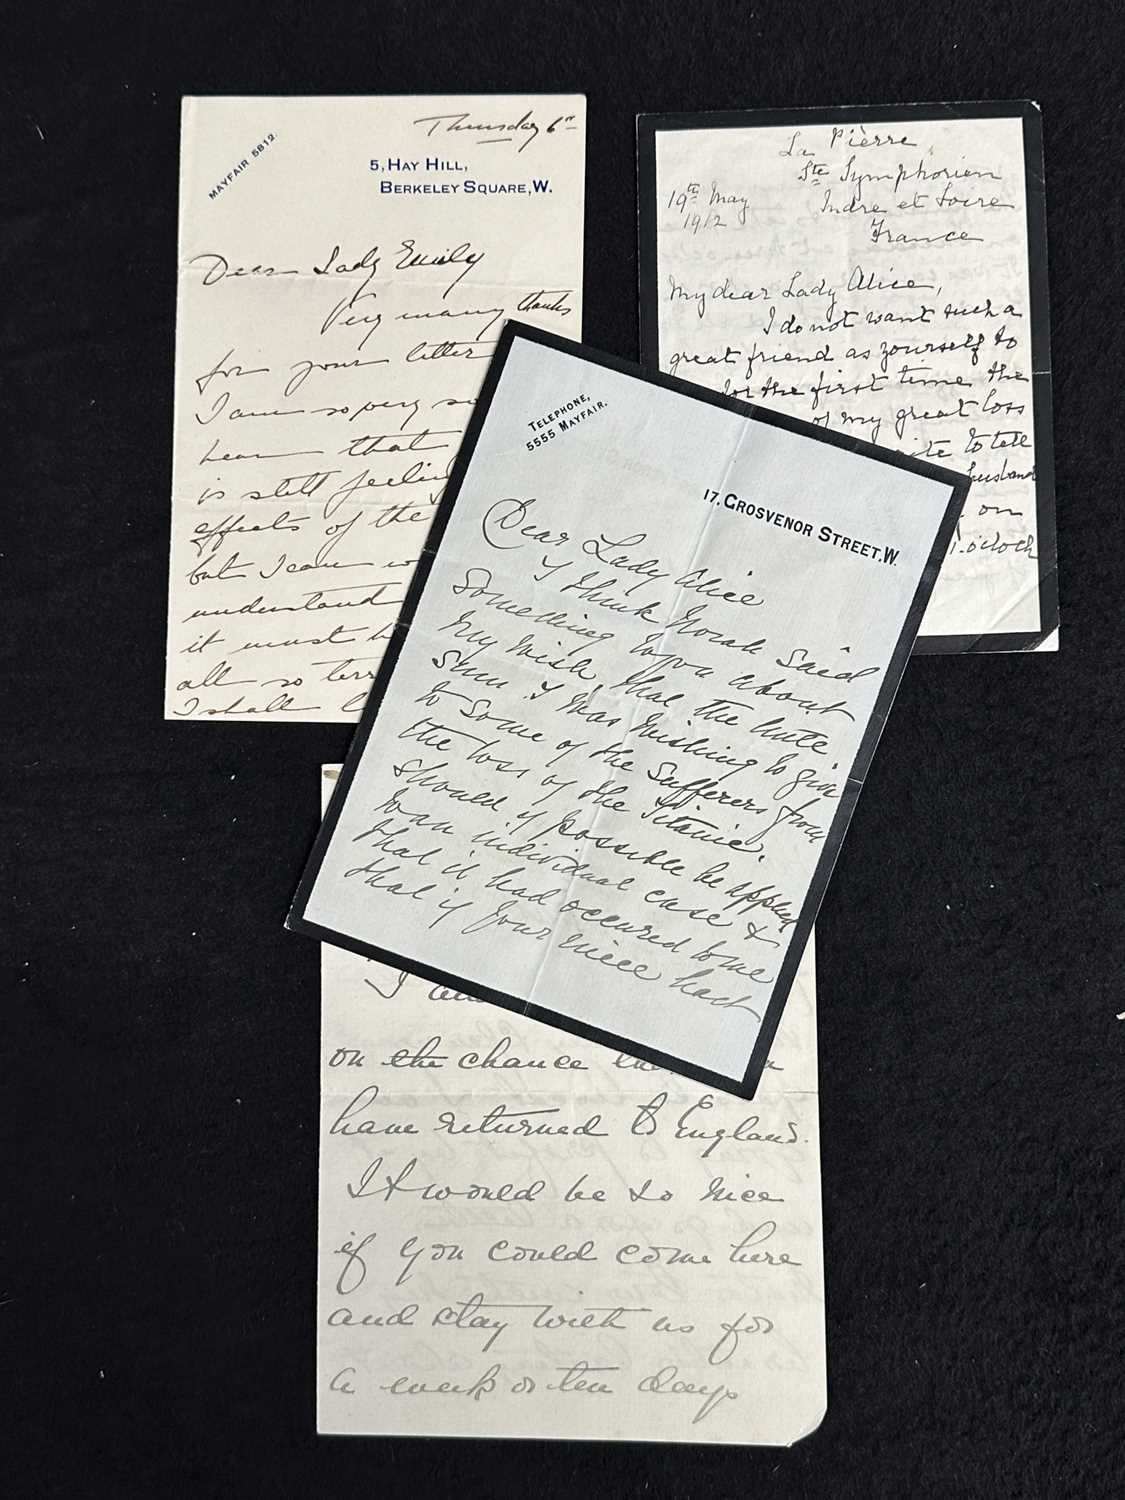 Thursday 6th
MAYFAIR 5812.
5, HAY HILL,
BERKELEY SQUARE, W.
Dear Lady Emily
Very many thanks
for your letter
I am so very so
hear that
is still feeling
effects of the
but I can w
understand
it must b
all so terr
I shall
La Pièrre
Ste Symphorien
19th May
Indre et Loire
1912
France
My dear Lady Alice,
I do not want such a
great friend as yourself to
for the first time the
of my great loss
ite to tell
husband
on
1. o'clock
TELEPHONE,
5555 MAYFAIR.
17, GROSVENOR STREET, W.
Dear Lady Alice
I think Norah said
something to you about
my wish that the little
sum I was wishing to give
to some of the sufferers from
the loss of the Titanic.
should if possible be applied
to an individual case &
that it had occured to me
that if your niece had
I
on the chance
have returned to England.
It would be so nice
if you could come here
and stay with us for
a week or ten days